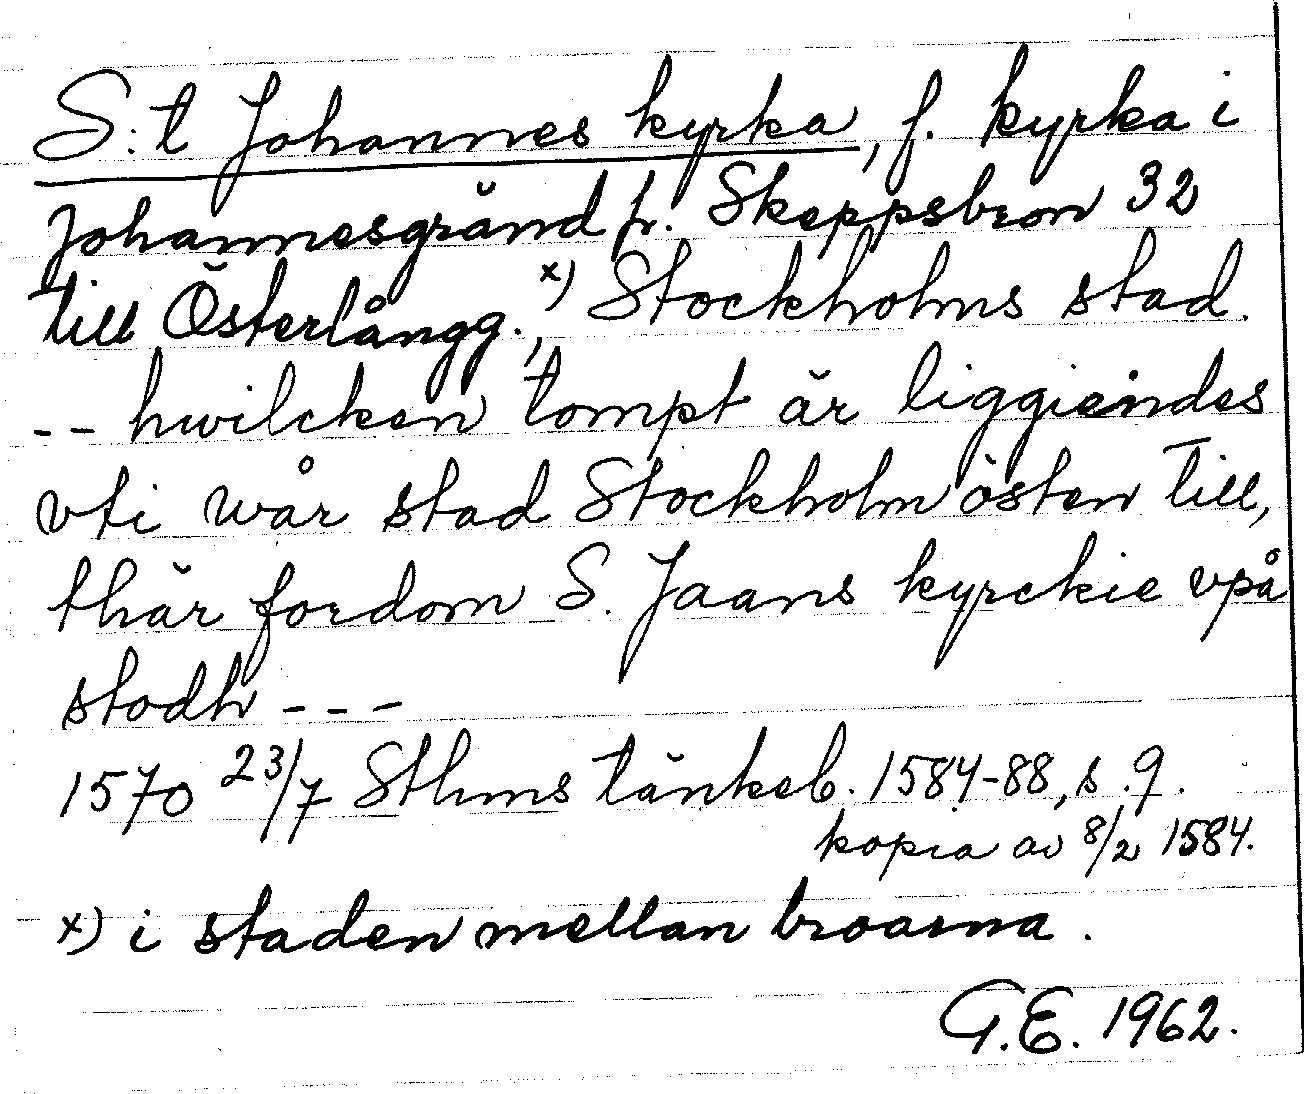 S:t Johannes kyrka, f. kyrka i
Johannesgränd fr. Skeppsbron 32
till Österlångg.,x) Stockholms stad.
-- hwilcken tompt är liggiendes
vti wår stad Stockholm östen till,
thär fordom S. Jaans kyrckie vpå
stodh ---
1570 23/7 Sthms tänkeb. 1584-88, s. 9.
kopia av 8/2 1584.
x) i staden mellan broarna.
G.E. 1962.